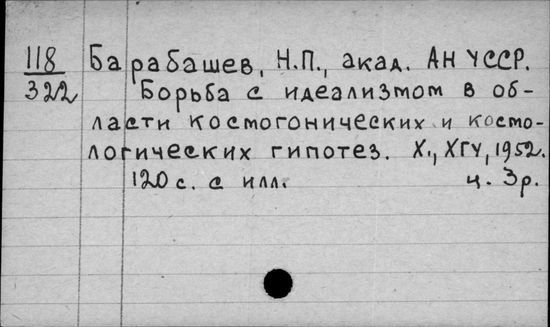 118 Барабашев, Н.П., акад. АН УССР.
322 Борьба с идеализмом в об-
ласти космогонических и космо-
логических гипотез. Х., ХГУ, 1952.
120 с. с илл. ц. 3р.